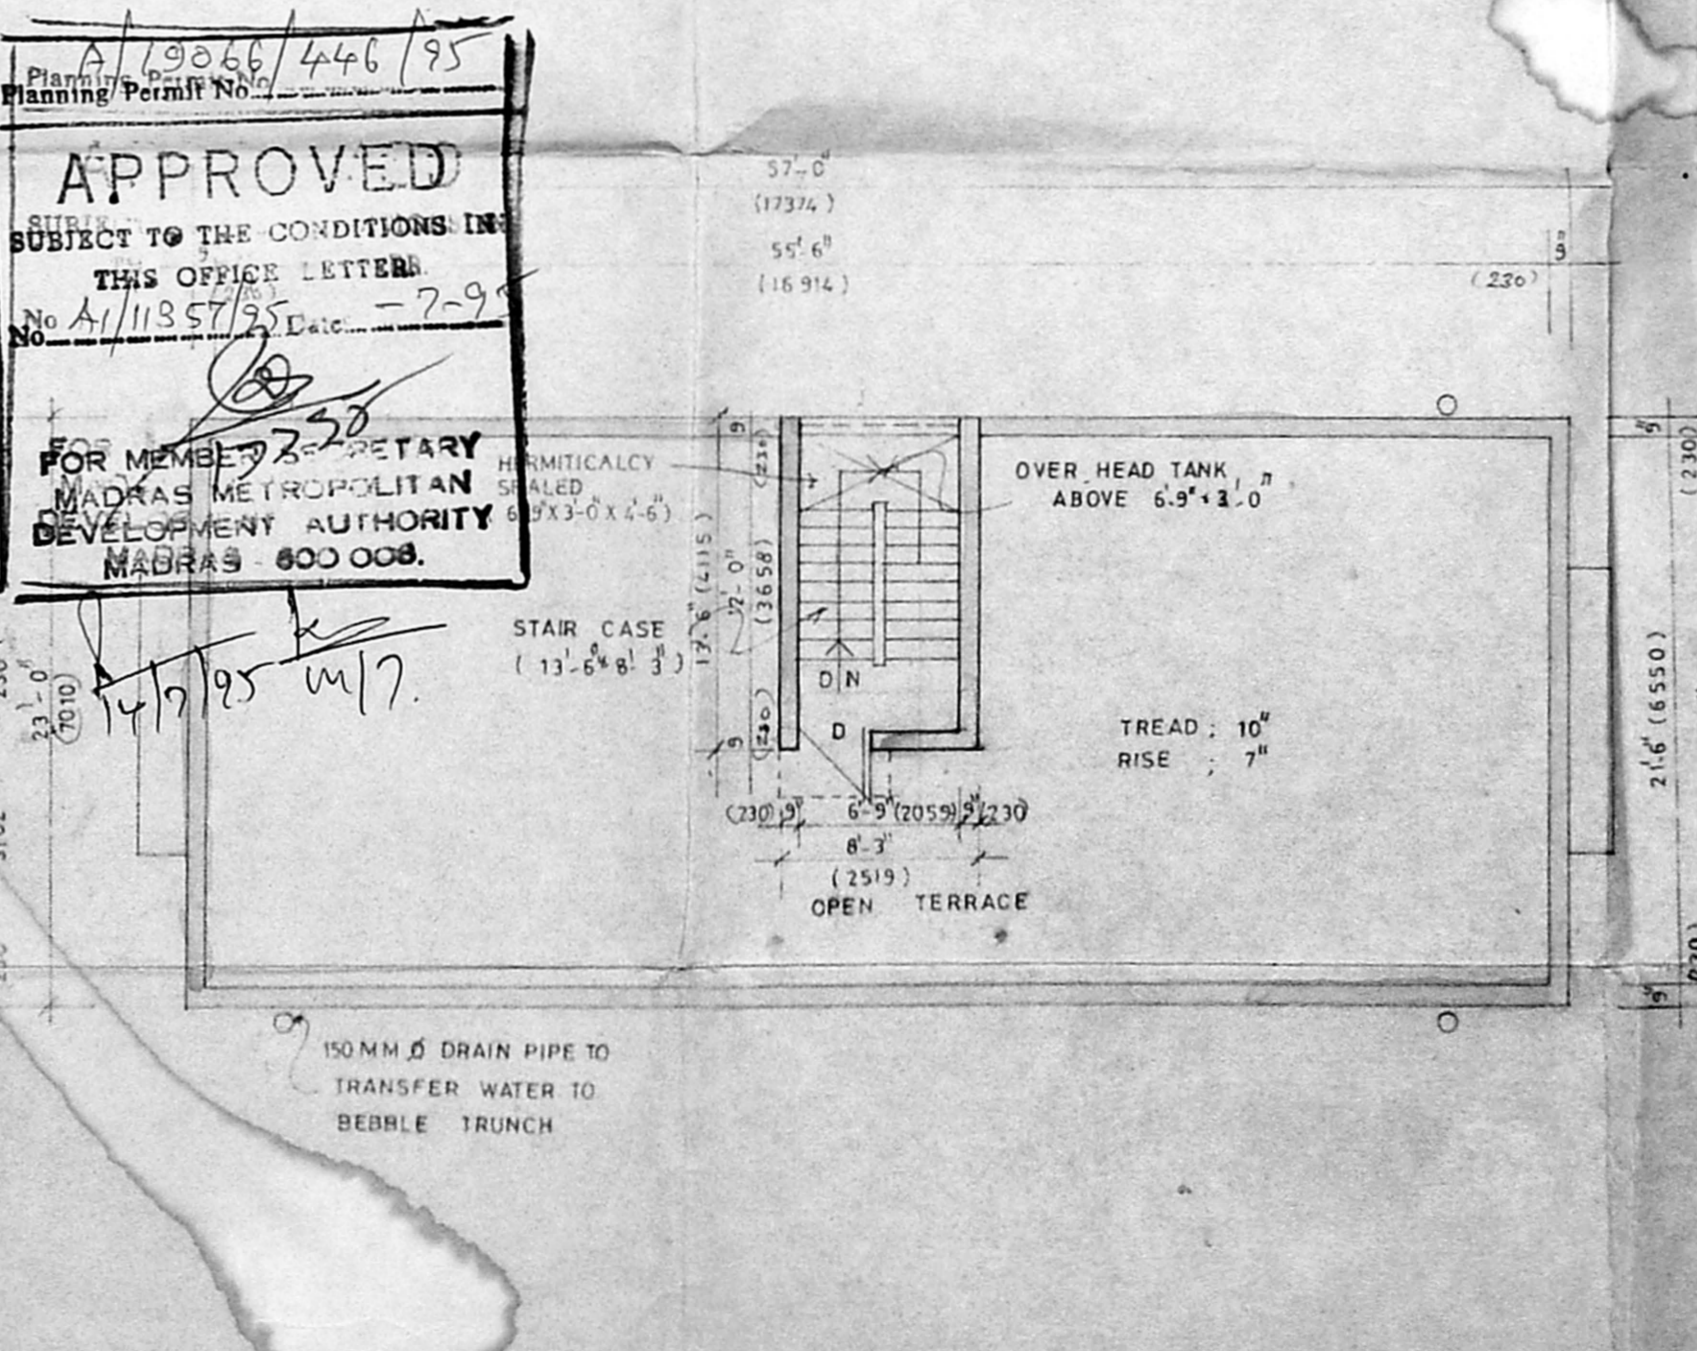 A/19066/446/95
Planning Permit No
APPROVED
SUBJECT TO THE CONDITIONS IN
THIS OFFICE LETTER.
No A1/11357/95 Date -7-95
FOR MEMBER SECRETARY
MADRAS METROPOLITAN
DEVELOPMENT AUTHORITY
MADRAS 600 008.
14/7/95
57'-0"
(17374)
55'-6"
(16914)
9"
(230)
HERMITICALCY
SEALED
6'-9"X3'-0"X4'-6")
OVER HEAD TANK
ABOVE 6'-9"x3'-0"
STAIR CASE
(13'-6"x8'-3")
13'-6" (4115)
9"
(230)
12'-0"
(3658)
9
(230)
DN
D
TREAD ; 10"
RISE ; 7"
(230) 9" 6'-9" (2059) 9" (230)
8'-3"
(2519)
OPEN TERRACE
23'-0"
(7010)
9"
(230)
21'.6" (6550)
9"
(230)
150 MM Ø DRAIN PIPE TO
TRANSFER WATER TO
BEBBLE TRUNCH